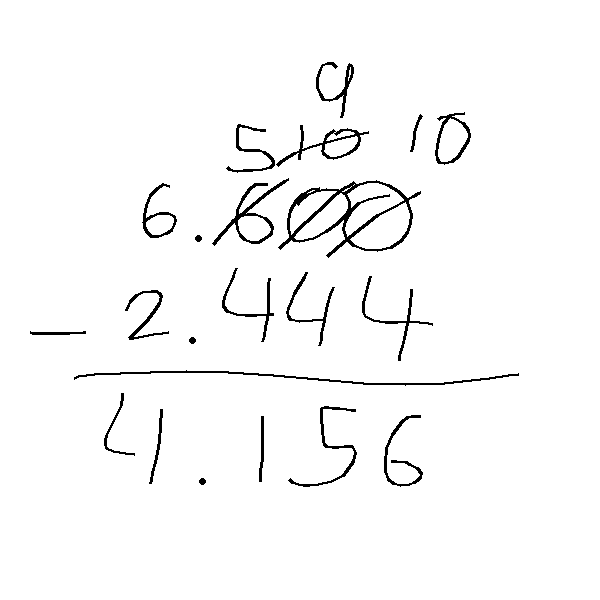 9
5 10 10
6.600
- 2.444
4.156